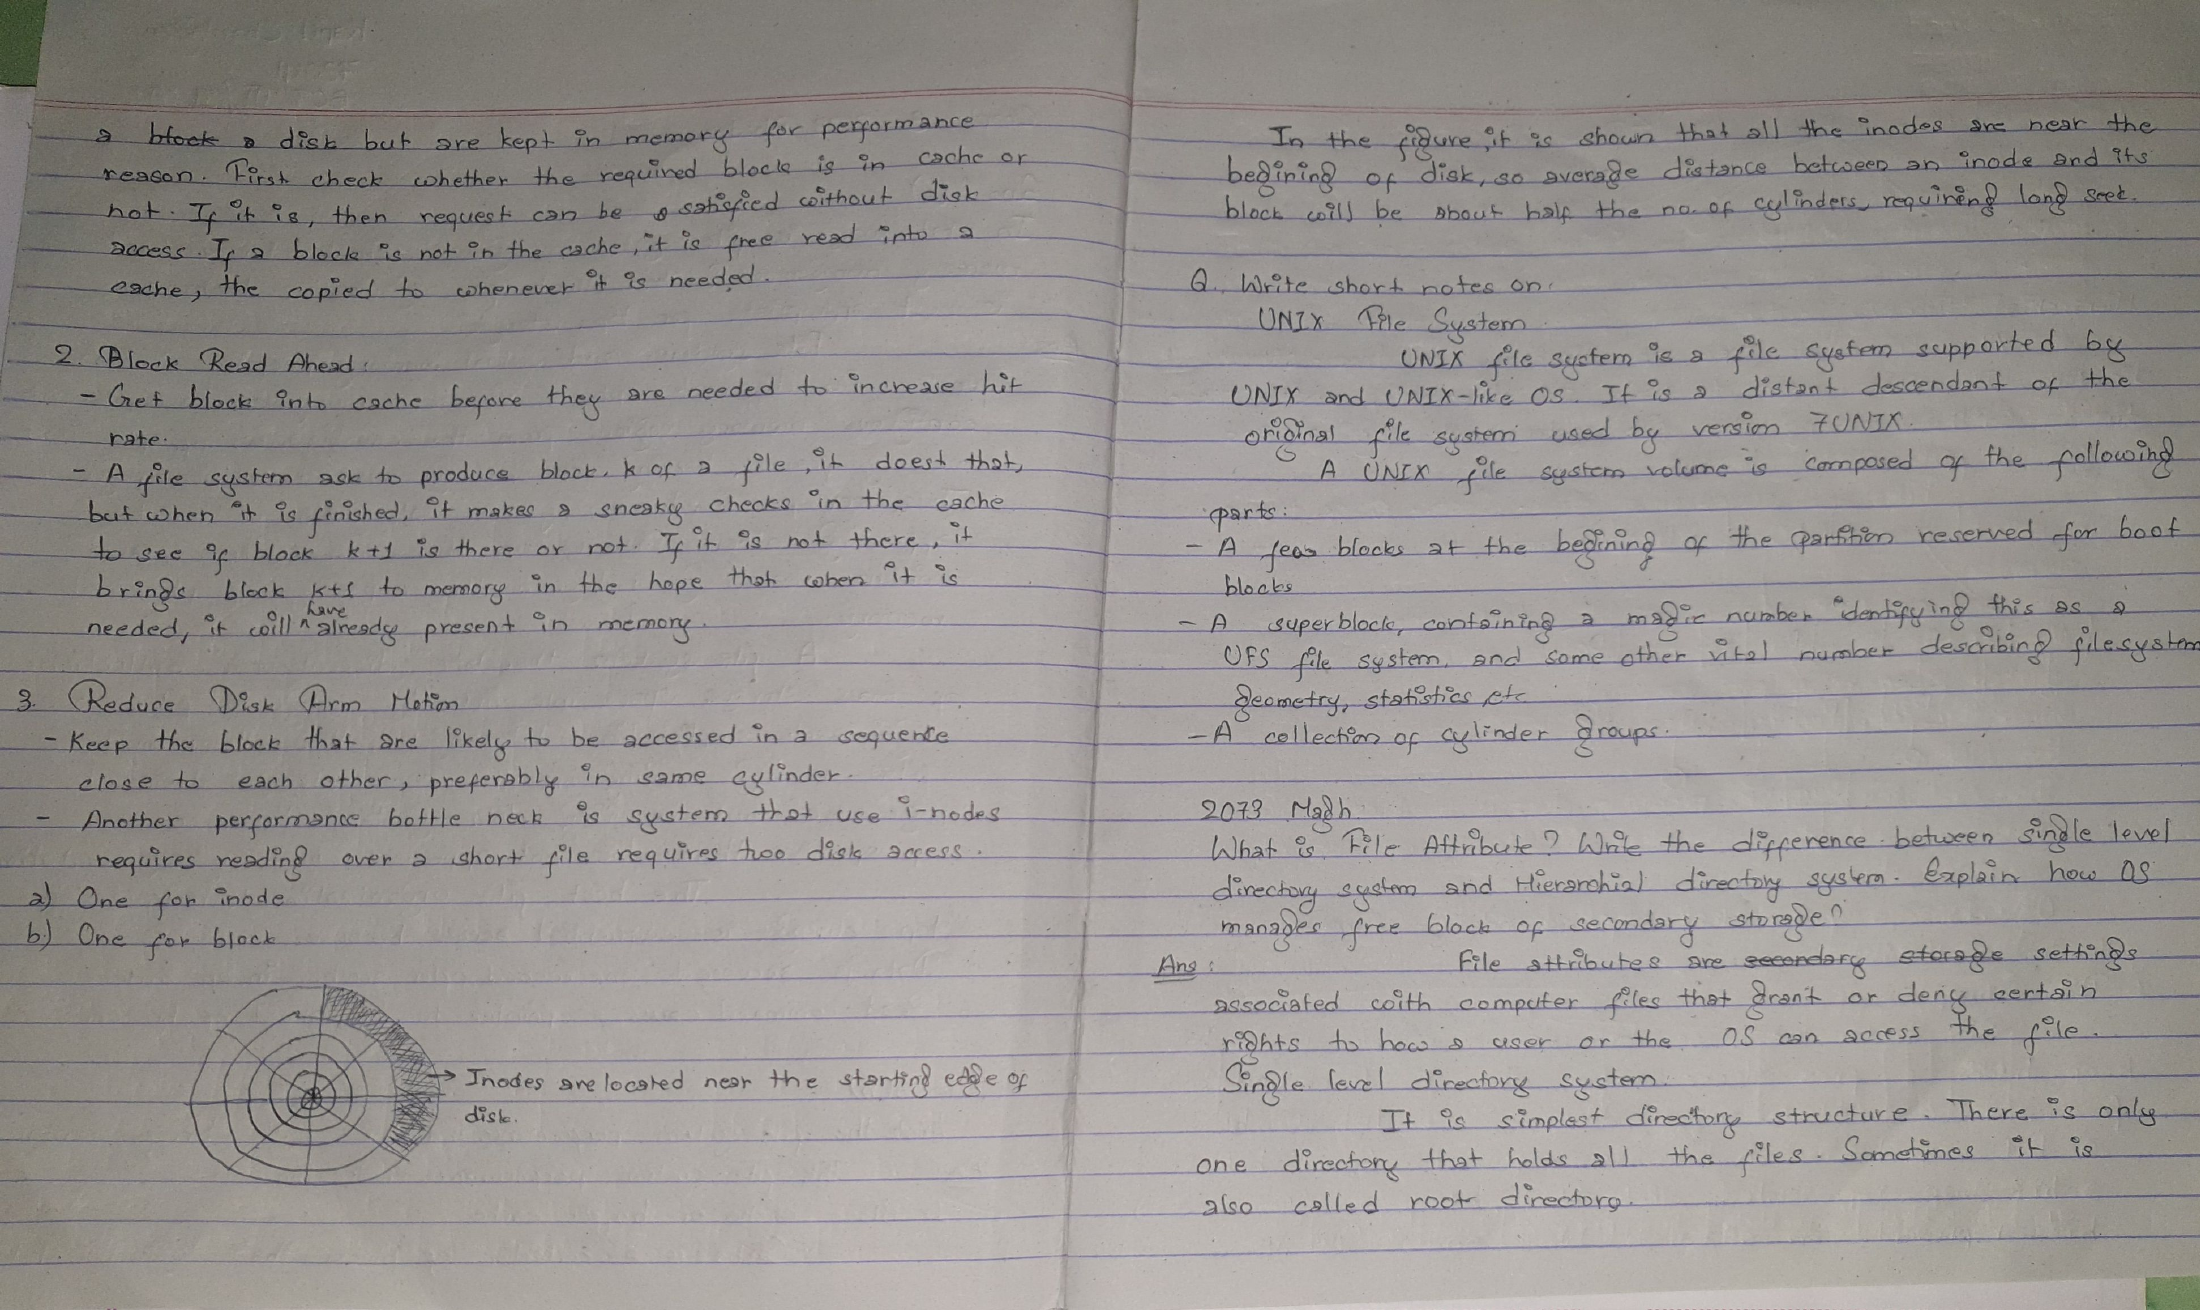 a block a disk but are kept in memory for performance
reason. First check whether the required block is in cache or
not. If it is, then request can be satisfied without disk
access. If a block is not in the cache, it is free read into a
cache, the copied to whenever it is needed.
2. Block Read Ahead:
- Get block into cache before they are needed to increase hit
rate.
- A file system ask to produce block k of a file, it doest that,
but when it is finished, it makes a sneaky checks in the cache
to see if block k+1 is there or not. If it is not there, it
brings block k+1 to memory in the hope that when it is
needed, it will have already present in memory.
3. Reduce Disk Arm Motion
- Keep the block that are likely to be accessed in a sequence
close to each other, preferably in same cylinder.
- Another performance bottle neck is system that use i-nodes
requires reading over a short file requires two disk access.
a) One for inode
b) One for block
→ Inodes are located near the starting edge of
disk.
In the figure, it is shown that all the inodes are near the
begining of disk, so average distance between an inode and its
block will be about half the no. of cylinders, requiring long seek.
Q. Write short notes on:
UNIX File System
UNIX file system is a file system supported by
UNIX and UNIX-like OS. It is a distant descendant of the
original file system used by version 7UNIX.
A UNIX file system volume is composed of the following
parts:
- A few blocks at the begining of the partition reserved for boot
blocks
- A superblock, containing a magic number identifying this as a
UFS file system, and some other vital number describing filesystem
geometry, statistics, etc
- A collection of cylinder groups.
2073 Magh
What is File Attribute? Write the difference between single level
directory system and Hierarchial directory system. Explain how OS
manages free block of secondary storage?
Ans: File attributes are secondary storage settings
associated with computer files that grant or deny certain
rights to how a user or the OS can access the file.
Single level directory system.
It is simplest directory structure. There is only
one directory that holds all the files. Sometimes it is
also called root directory.